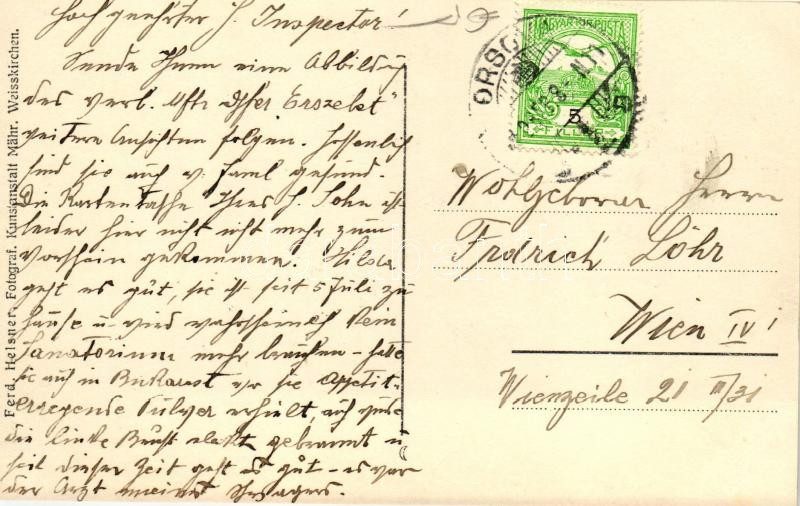 Hochgeehrter H. Inspector!
Sende Ihnen eine Abbildung
des verl.
weitere Ansichten folgen. Hoffenlich
sind sie auch v. Faml gesund.
Die Kartentasche Ihres H. Sohn ist
leider hier nicht mehr zum
Vorschein gekommen. Hilda
geht es gut, sie ist seit 5 Juli zu
Hause u. wird wahrscheinlich kein
Sanatorium mehr brauchen - hatte
sie auch in Bukarest wo sie Appetit-
erregende Pulver erhielt, auch wurde
die linke Brust elekt. gebrannt u.
seit dieser Zeit geht es gut - es war
der Arzt meines Schwagers.
Ferd. Helsner, Fotograf. Kunstanstalt Mähr. Weisskirchen.
MAGYAR KIR. POSTA
5
ORSO
Wohlgeboren Herrn
Frdrich Löhr
Wien IV
Wienzeile 21 III/31